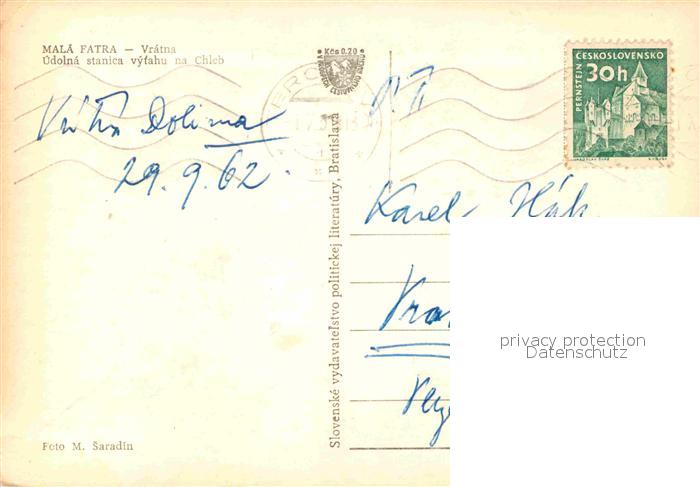 MALÁ FATRA — Vrátna
Údolná stanica výťahu na Chleb
Kčs 0.20
PERNŠTEJN
ČESKOSLOVENSKO
30h
Dolina
29. 9. 62
Karel Hák
Slovenské vydavateľstvo politickej literatúry, Bratislava
privacy protection
Datenschutz
Foto M. Šaradín